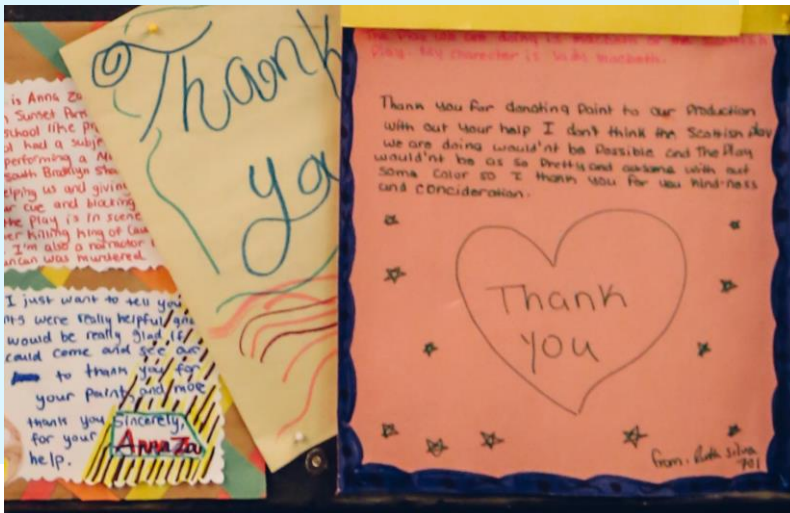 is Anna Za
Sunset Par
school like pr
had a subje
performing a M
South Brooklyn Sha
elping us and giving
r cue and blocking
the Play is in scene
er killing king of Caw
I'm also a narrator
ncan was murdered
I just want to tell you
nts were really helpful and
would be really glad if
could come and see our
to thank you for
your paint, and more
thank you Sincerely,
for your Anna Za
help.
Thank
you
The Play we are doing is Macbeth or the Scottish
Play. My character is lady macbeth.
Thank you for donating Paint to our Production
with out your help I don't think the Scottish Play
we are doing would'nt be Possible and The Play
would'nt be as so Pretty and awsome with out
some color so I thank you for you kind-ness
and concideration.
Thank
you
from: Ruth Silva
701